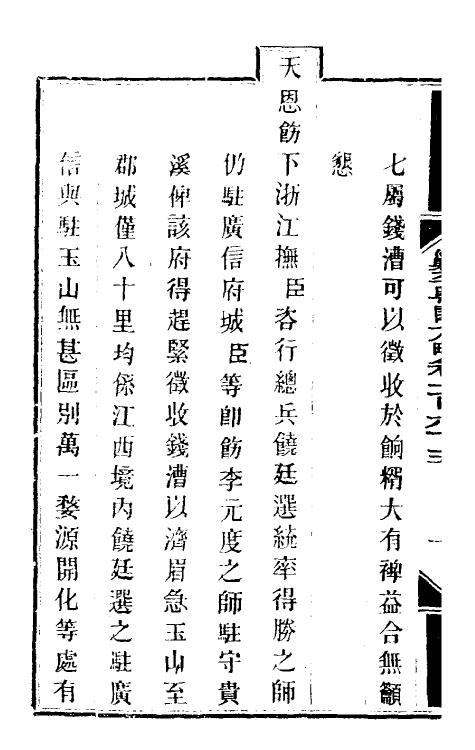 七屬錢漕可以徵收於餉糈大有裨益合無籲
懇
天恩飭下浙江撫臣咨行總兵饒廷選統率得勝之師
仍駐廣信府城臣等即飭李元度之師駐守貴
溪俾該府得趕緊徵收錢漕以濟眉急玉山至
郡城僅八十里均係江西境內饒廷選之駐廣
信與駐玉山無甚區別萬一婺源開化等處有